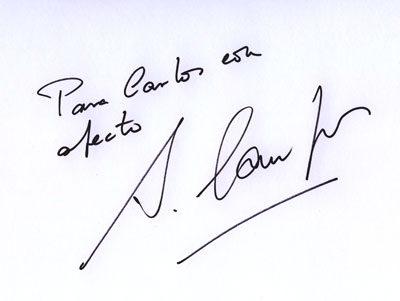 Para Carlos con
afecto